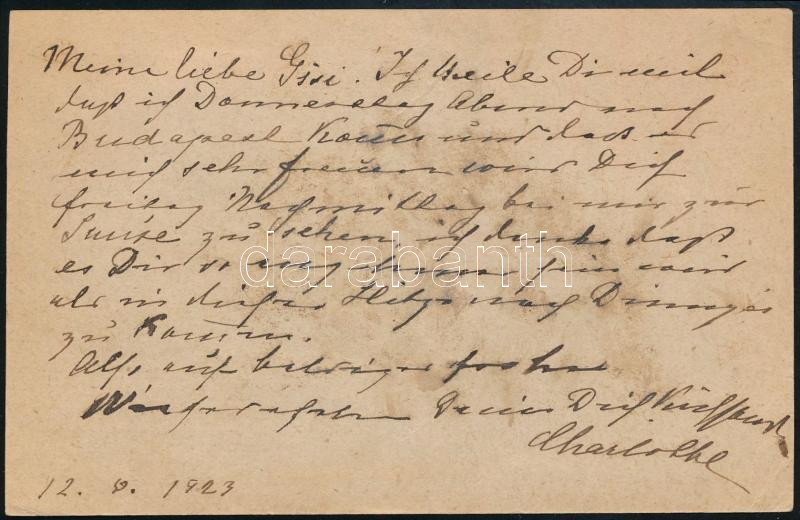 Meine liebe Gisi. Ich theile Dir mit
daß ich Donnerstag Abend nach
Budapest komm und dass er
mich sehr freuen wird Dich
freitag Nachmittag bei mir zur
Jause zu sehen, ich denke daß
es Dir so angenehmer sein wird
als in dieser Hitze nach
zu komm.
Also auf baldiges frohes
Wiedersehen Deine Dich küssende
Charlotte
12. 8. 1923
darabanth